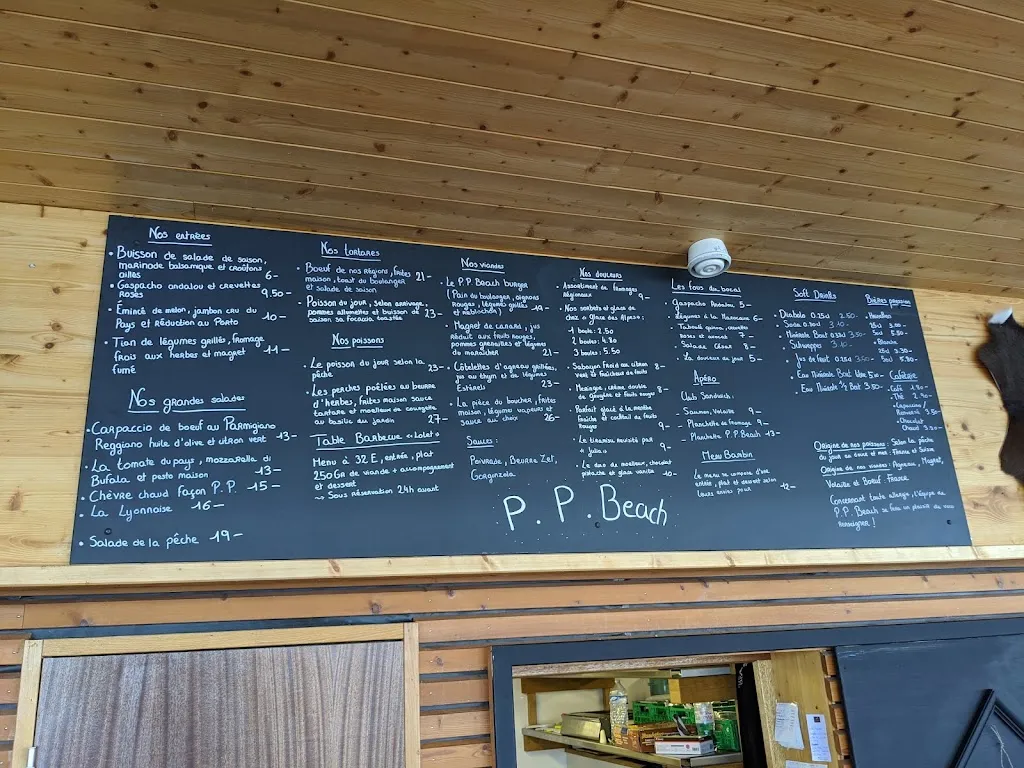 Nos entrées
• Buisson de salade de saison,
marinade balsamique et croûtons
aillés 6-
• Gaspacho andalou et crevettes
Roses 9.50-
• Émincé de melon, jambon cru du
Pays et réduction au Porto 10-
• Tian de légumes grillés, fromage
frais aux herbes et magret 11-
fumé
Nos grandes salades
• Carpaccio de boeuf au Parmigiano
Reggiano huile d'olive et citron vert 13-
• La tomate du pays, mozzarella di
Bufala et pesto maison 13-
• Chèvre chaud façon P.P. 15-
• La Lyonnaise 16-
• Salade de la pêche 19-
Nos tartares
• Boeuf de nos régions, frites 21-
maison, toast du boulanger
et salade de saison
• Poisson du jour, selon arrivage,
pommes allumettes et buisson de 23-
saison sa focacia toastée
Nos poissons
• Le poisson du jour selon la 23-
pêche
• Les perches poêlées au beurre
d'herbes, frites maison sauce
tartare et moelleux de courgette
au basilic du jardin 27-
Table Barbecue
Menu à 32 E, entrée, plat
250Gr de viande + accompagnement
et dessert
Sous réservation 24h avant
Nos viandes
• Le P.P. Beach burger
(Pain du boulanger, oignons
Rouges, légumes grillés 19-
et reblochon)
• Magret de canard, jus
Réduit aux fruits rouges,
pommes grenailles et légumes
du maraîcher 21-
• Côtelettes d'agneau grillées,
jus au thym et de légumes
23-
• La pièce du boucher, frites
maison, légumes vapeurs et
sauce au choix 26-
Sauces :
Poivrade, Beurre Zef,
Gorgonzola.
P.P. Beach
Nos douceurs
• Assortiment de fromages
Régionaux 9-
• Nos sorbets et glaces de
chez « glace des Alpes » :
1 boule : 2.50
2 boules : 4.80
3 boules : 5.50
• Sabayon froid au citron 8-
vert et fraîcheur de fruits
• Meringue, crème double
de gruyère et fruits rouges 8-
• Parfait glacé à la menthe
fraîche et cocktail de fruits
Rouges 9-
• Le tiramisu revisité par
« Julie » 9-
chocolat
pistache et glace vanille 10-
Les fous du bocal
• Gaspacho 5-
• Légumes à la Marocaine 6-
• Taboulé quinoa, crevettes
roses et avocat 7-
• Salade César 8-
• La douceur du jour 5-
Apéro
Club Sandwich :
- Saumon, Volaille 9-
- Planchette de fromage 9-
- Planchette P.P. Beach 13-
Menu Bambin
Le menu se compose d'une
entrée, plat et dessert selon
12-
Soft Drinks
• Diabolo 0.25cl 2.50-
• Schweppes 3.10-
• Jus de fruit 0.25cl 3.50-
Bières pression
25cl
50cl 5.50-
• Blanche
25cl 3.30-
50cl 5.80-
Cafétérie
• Café 1.90-
• Thé 2.90-
• Cappuccino /
Renversé 3.50-
• Chocolat
Chaud 3.50-
Origine de nos poissons : Selon la pêche
du jour en Savoie et mer : France et Suisse
Origine de nos viandes : Agneau, Magret,
Volaille et Boeuf France
Concernant toute allergie, l'équipe de
P.P. Beach se fera un plaisir de vous
renseigner !